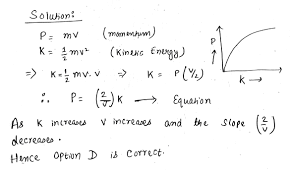 Solution:
P = mv (momentum)
K = ½ mv² (Kinetic Energy)
⇒ K = ½ mv.v ⇒ K = P(v/2)
∴ P = (2/v) K ⟶ Equation
P
K →
As K increases V increases and the slope (2/v)
decreases.
Hence Option D is correct.